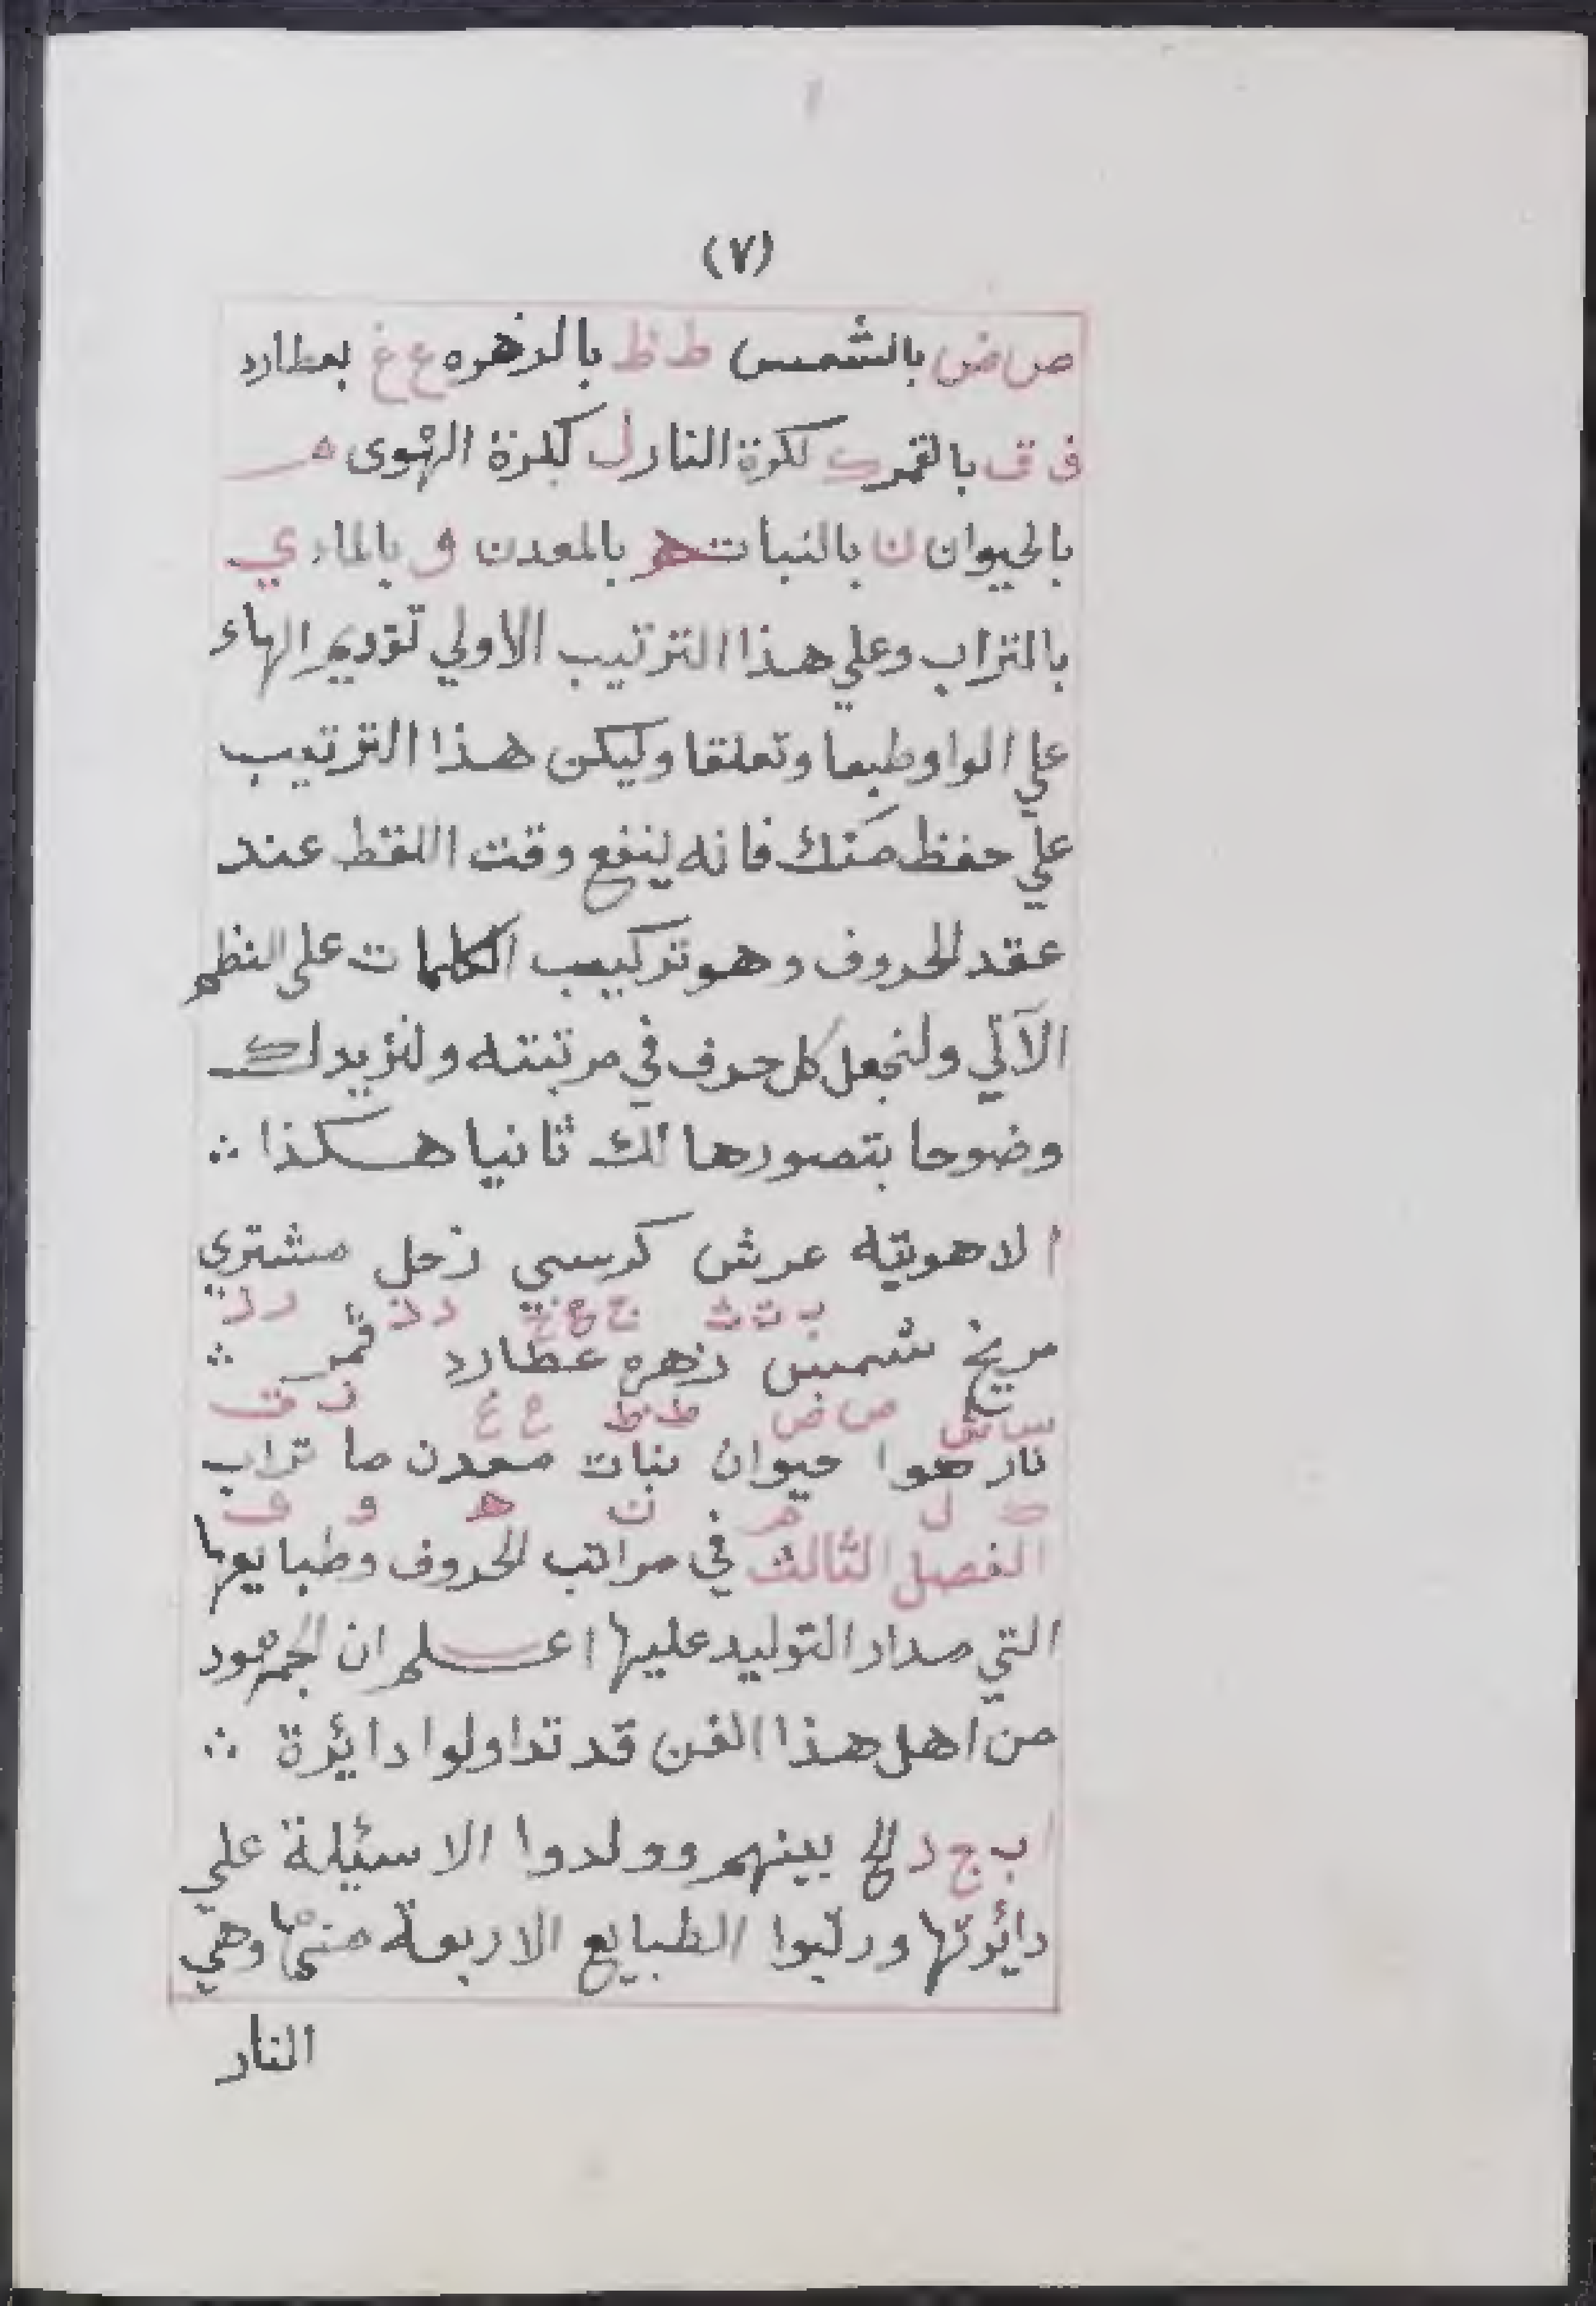 (٧)
ص ض بالشمس ط ظ بالزهره ع غ بعطارد
ف ق بالقمر ك لكرة النار ل كلرة الهوى م
بالحيوان ن بالنبات ه بالمعدن و بالماء ي
بالتراب وعلي هذا الترتيب الاولي تقديم الهاء
علي الواو طبعا وتعلقا وليكن هذا الترتيب
علي حفظ منك فانه ينفع وقت اللقط عند
عقد الحروف وهو تركيب الكلمات على النظم
الآلي ولنجعل كل حرف في مرتبته ولنزيدك
وضوحا بتصورها لك ثانيا هكذا ∴
ا لاهوتيه عرش كرسي زحل مشتري
ب ت ث ج ح خ د ذ ر ز
مريخ شمس زهره عطارد قمر ∴
س ش ص ض ط ظ ع غ ف ق
نار هوا حيوان نبات معدن ما تراب
ك ل م ن ه و
الفصل الثالث في مراتب الحروف وطبايعها
التي مدار التوليد عليها اعلم ان الجمهور
من اهل هذا الفن قد تداولوا دائرة ∴
ا ب ج د الخ بينهم وولدوا الاسئيلة علي
دائرتها ورتبوا الطبايع الاربعة منها وهي
النار